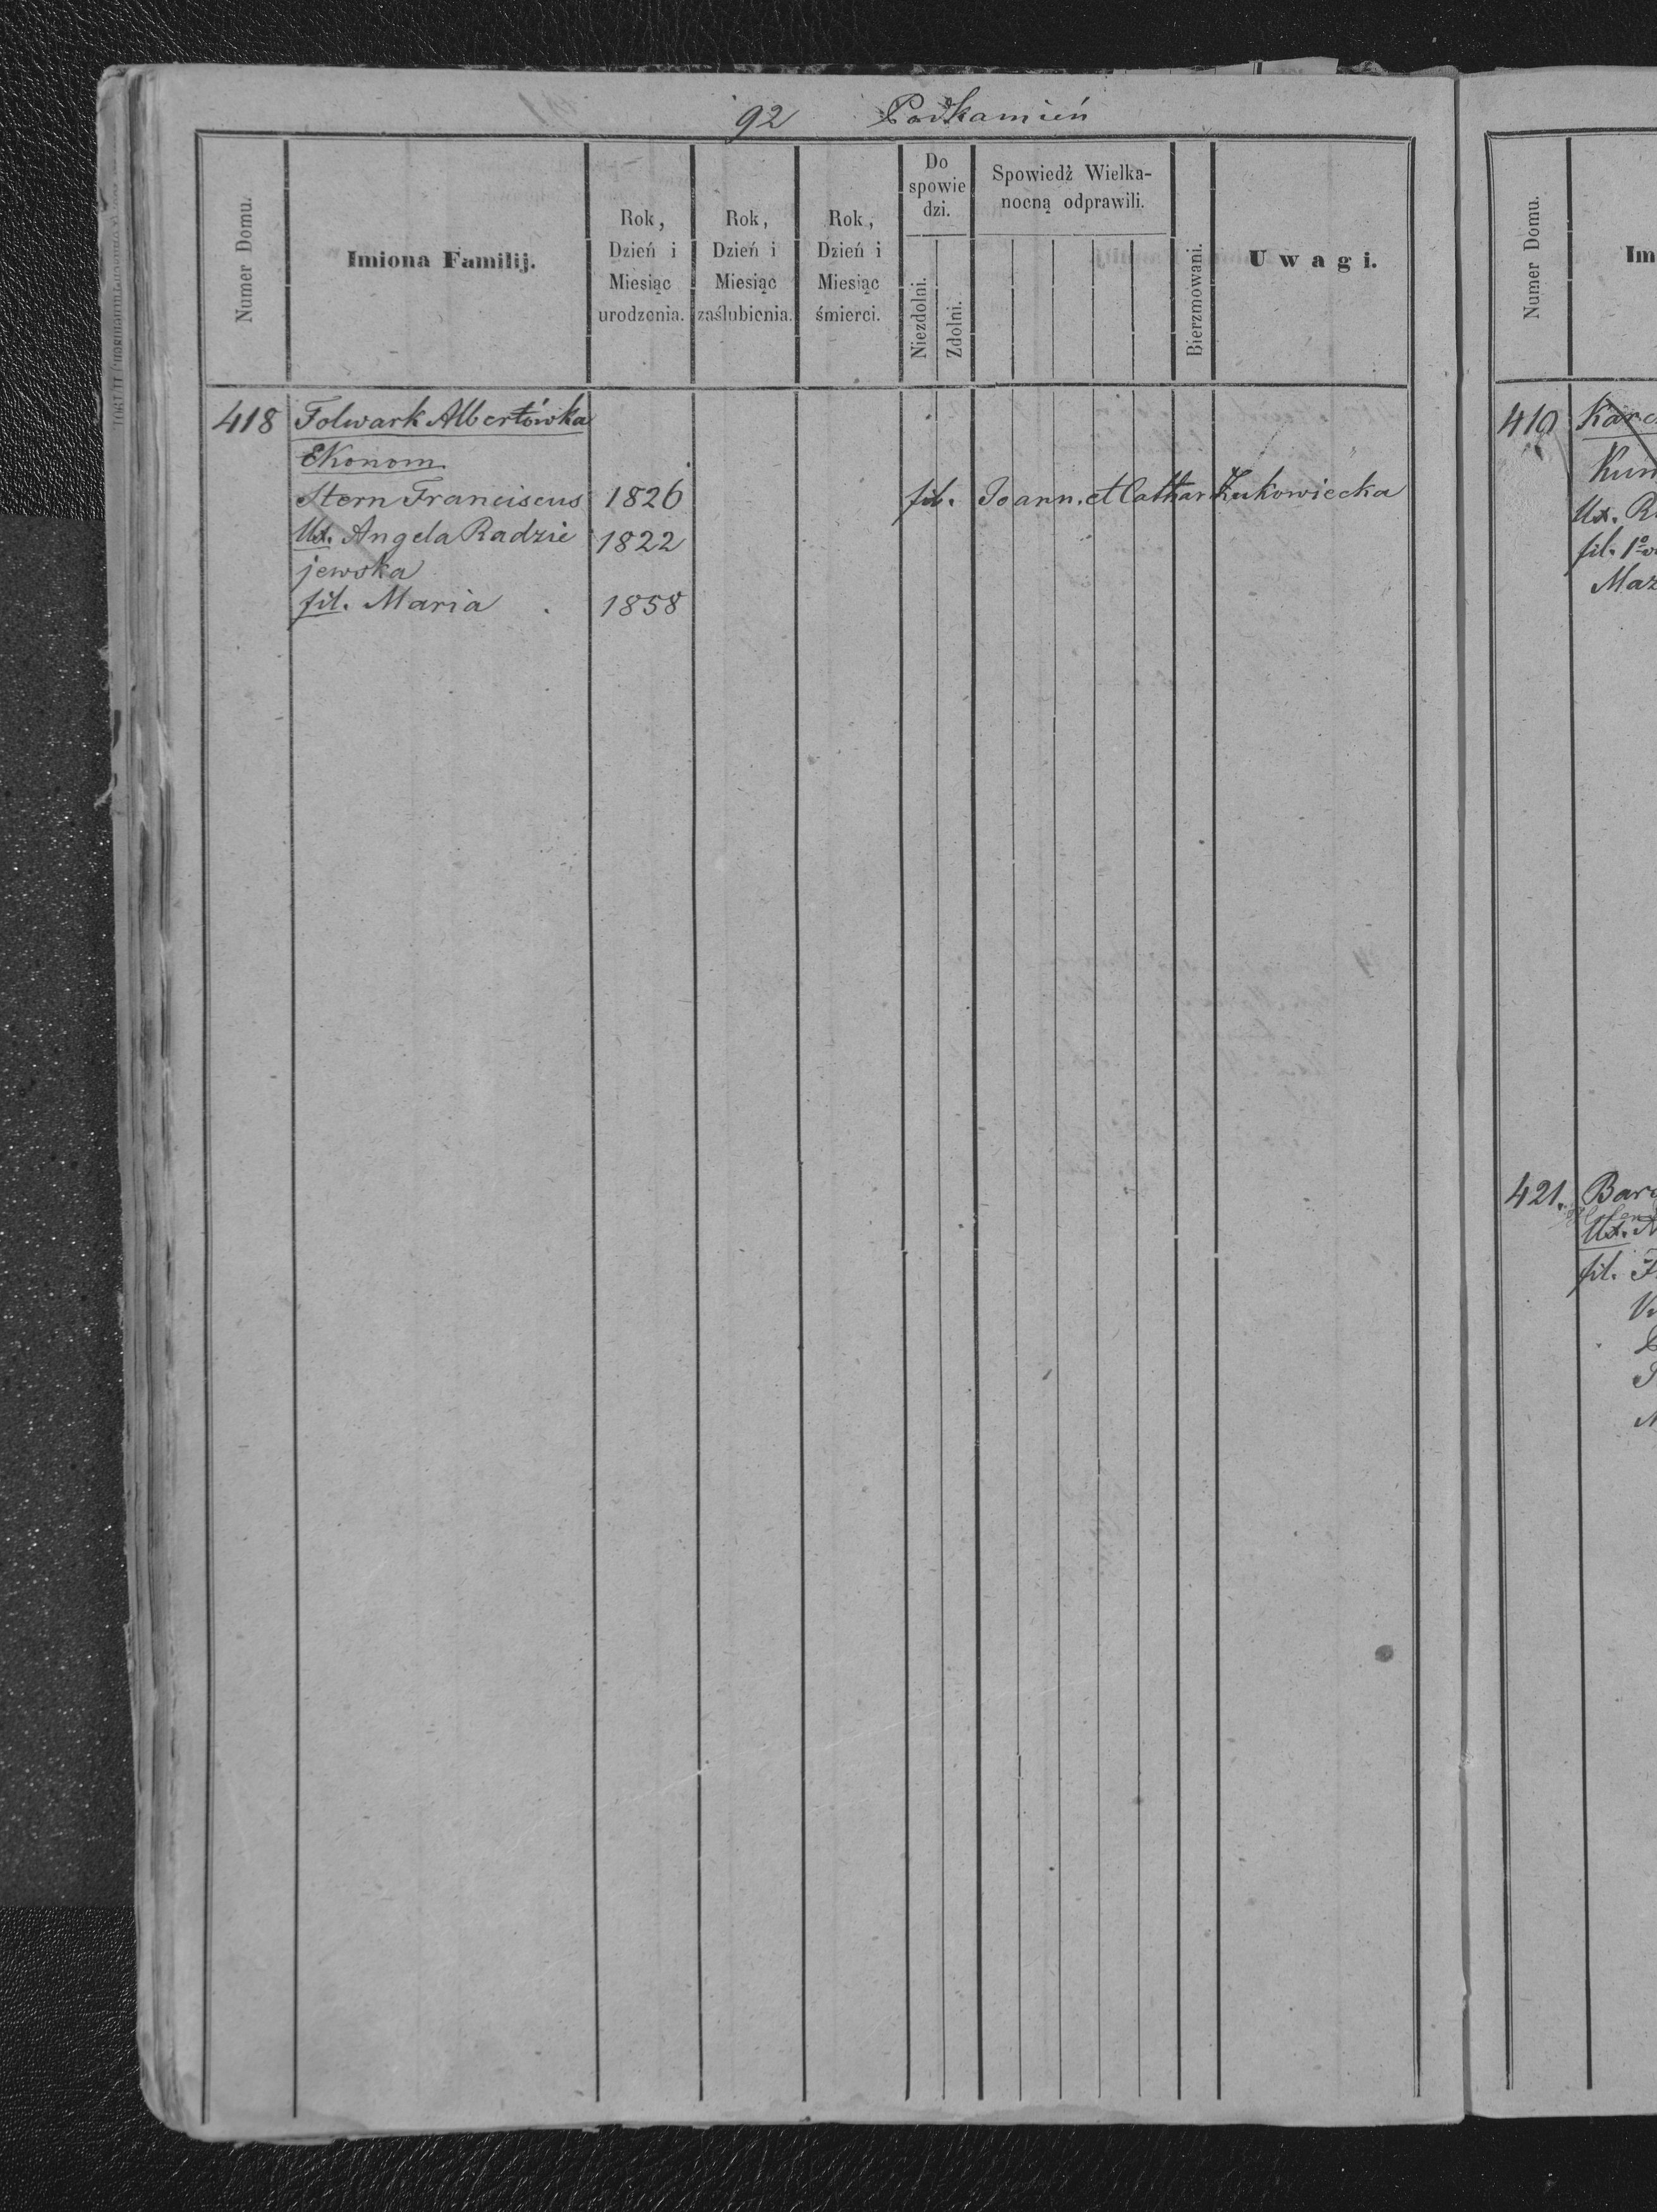 92 Podkamień
Numer Domu.
Imiona Familij.
Rok,
Dzień i
Miesiąc
urodzenia.
Rok,
Dzień i
Miesiąc
zaślubienia.
Rok,
Dzień i
Miesiąc
śmierci.
Do
spowie
dzi.
Niezdolni.
Zdolni.
Spowiedź Wielka-
nocną odprawili.
Bierzmowani.
Uwagi.
418 Folwark Albertówka
Ekonom
Stern Franciscus 1826 fil. Joann. et Cathar Żukowiecka
Ux. Angela Radzie 1822
jewska
fil. Maria 1858
Numer Domu.
Im
410
Kun
Ux. R
fil. 1º
Maz
421. Bar
Ux.
fil.